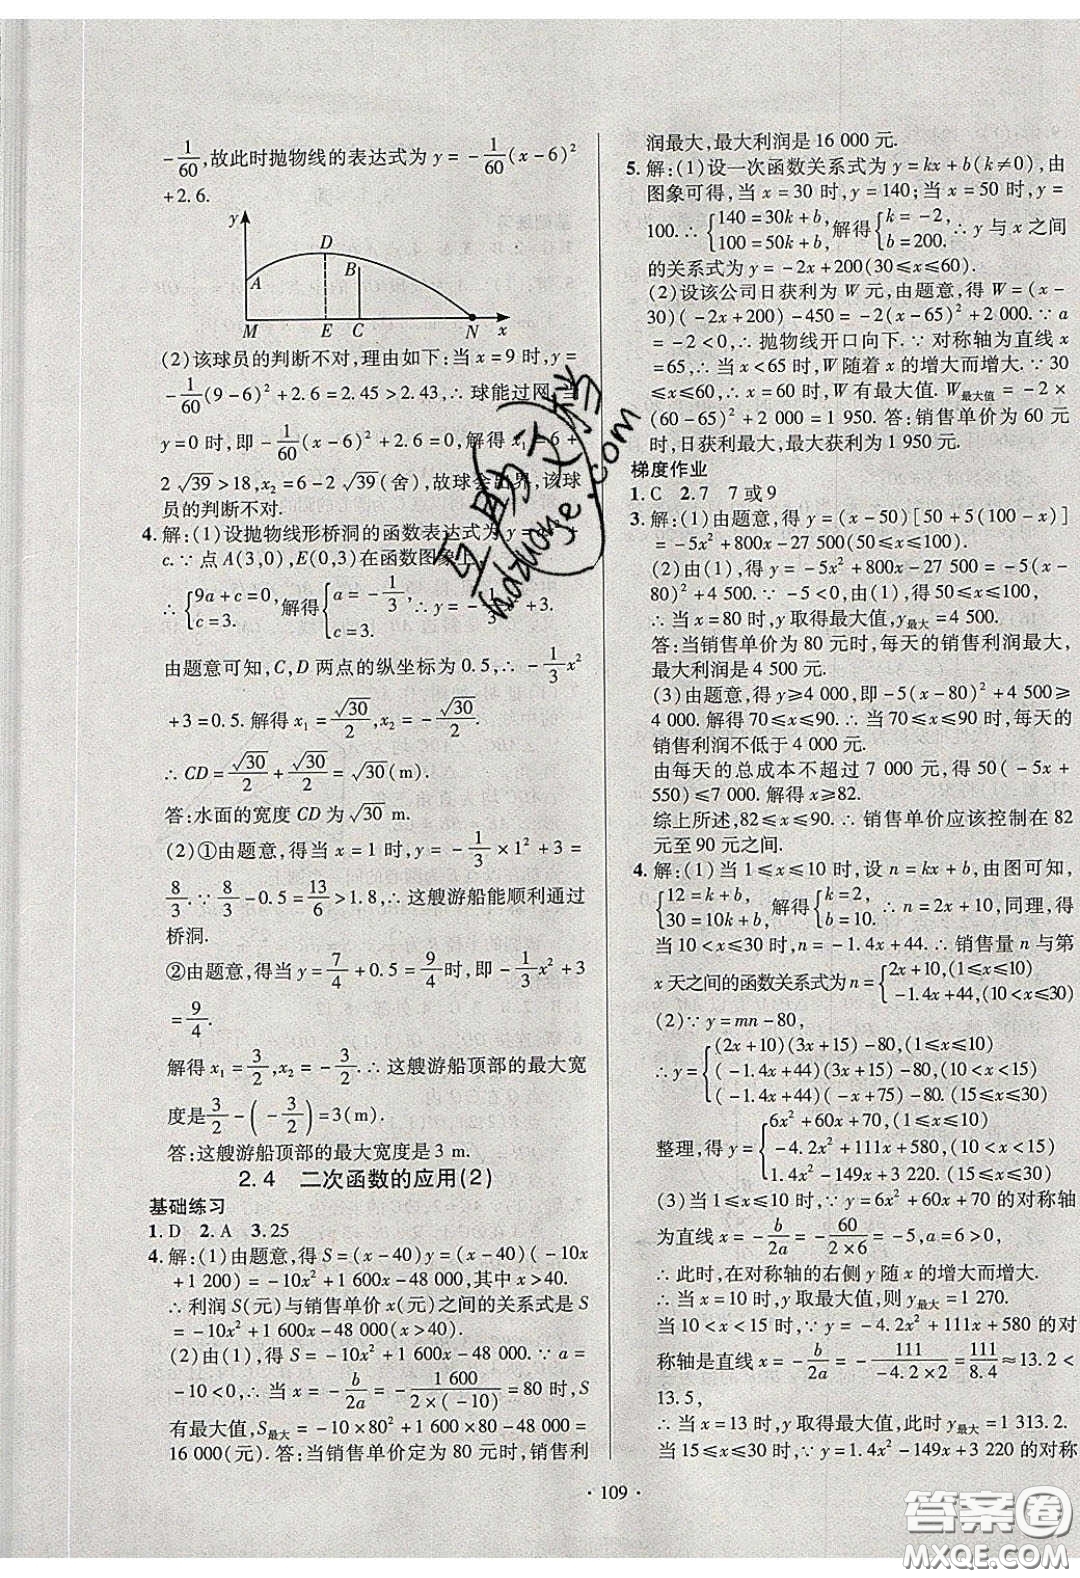 -1/60,故此时抛物线的表达式为 y = -1/60(x-6)²
+2.6.
y
D
B
A
M E C N x
(2)该球员的判断不对,理由如下:当 x=9 时,y=
-1/60(9-6)²+2.6=2.45>2.43,∴ 球能过网.当
y=0 时,即 -1/60(x-6)²+2.6=0,解得 x₁=6+
2√39>18,x₂=6-2√39(舍),故球会出界,该球
员的判断不对.
4. 解:(1)设抛物线形桥洞的函数表达式为 y=
c.∵ 点 A(3,0),E(0,3)在函数图象上,
∴ {9a+c=0, c=3. 解得 {a=-1/3, c=3. ∴ y=-1/3x²+3.
由题意可知,C,D 两点的纵坐标为 0.5,∴ -1/3x²
+3=0.5. 解得 x₁=√30/2,x₂=-√30/2.
∴ CD=√30/2+√30/2=√30(m).
答:水面的宽度 CD 为 √30 m.
(2)①由题意,得当 x=1 时,y=-1/3×1²+3=
8/3.∵ 8/3-0.5=13/6>1.8,∴ 这艘游船能顺利通过
桥洞.
②由题意,得当 y=7/4+0.5=9/4时,即 -1/3x²+3
=9/4.
解得 x₁=3/2,x₂=-3/2.∴ 这艘游船顶部的最大宽
度是3/2-(-3/2)=3(m).
答:这艘游船顶部的最大宽度是 3 m.
2.4 二次函数的应用(2)
基础练习
1. D 2. A 3. 25
4. 解:(1)由题意,得 S=(x-40)y=(x-40)(-10x
+1 200)=-10x²+1 600x-48 000,其中 x>40.
∴ 利润 S(元)与销售单价 x(元)之间的关系式是 S
=-10x²+1 600x-48 000(x>40).
(2)由(1),得 S=-10x²+1 600x-48 000.∵ a=
-10<0,∴ 当 x=-b/2a=-1 600/2×(-10)=80 时,S
有最大值,S最大=-10×80²+1 600×80-48 000=
16 000(元).答:当销售单价定为 80 元时,销售利
润最大,最大利润是 16 000 元.
5. 解:(1)设一次函数关系式为 y=kx+b(k≠0),由
图象可得,当 x=30 时,y=140;当 x=50 时,y=
100.∴ {140=30k+b, 100=50k+b, 解得 {k=-2, b=200. ∴ y 与 x 之间
的关系式为 y=-2x+200(30≤x≤60).
(2)设该公司日获利为 W 元,由题意,得 W=(x-
30)(-2x+200)-450=-2(x-65)²+2 000.∵ a
=-2<0,∴ 抛物线开口向下.∵ 对称轴为直线 x=
65,∴ 当 x<65 时,W 随着 x 的增大而增大.∵ 30
≤x≤60,∴ 当 x=60 时,W 有最大值.W最大值=-2×
(60-65)²+2 000=1 950. 答:销售单价为 60 元
时,日获利最大,最大获利为 1 950 元.
梯度作业
1. C 2. 7 7 或 9
3. 解:(1)由题意,得 y=(x-50)[50+5(100-x)]
=-5x²+800x-27 500(50≤x≤100).
(2)由(1),得 y=-5x²+800x-27 500=-5(x-
80)²+4 500.∵ -5<0,由(1),得 50≤x≤100,
∴ 当 x=80 时,y 取得最大值,y最大=4 500.
答:当销售单价为 80 元时,每天的销售利润最大,
最大利润是 4 500 元.
(3)由题意,得 y≥4 000,即 -5(x-80)²+4 500≥
4 000. 解得 70≤x≤90.∴ 当 70≤x≤90 时,每天的
销售利润不低于 4 000 元.
由每天的总成本不超过 7 000 元,得 50(-5x+
550)≤7 000. 解得 x≥82.
综上所述,82≤x≤90.∴ 销售单价应该控制在 82
元至 90 元之间.
4. 解:(1)当 1≤x≤10 时,设 n=kx+b,由图可知,
{12=k+b, 30=10k+b, 解得 {k=2, b=10. ∴ n=2x+10,同理,得
当 10<x≤30 时,n=-1.4x+44.∴ 销售量 n 与第
x 天之间的函数关系式为 n={2x+10,(1≤x≤10) -1.4x+44,(10<x≤30)
(2)∵ y=mn-80,
∴ y={(2x+10)(3x+15)-80,(1≤x≤10) (-1.4x+44)(3x+15)-80,(10<x<15) (-1.4x+44)(-x+75)-80,(15≤x≤30)
整理,得 y={6x²+60x+70,(1≤x≤10) -4.2x²+111x+580,(10<x<15) 1.4x²-149x+3 220,(15≤x≤30)
(3)当 1≤x≤10 时,∵ y=6x²+60x+70 的对称轴
为直线 x=-b/2a=-60/2×6=-5,a=6>0,
∴ 此时,在对称轴的右侧 y 随 x 的增大而增大.
∴ 当 x=10 时,y 取最大值,则 y最大=1 270.
当 10<x<15 时,∵ y=-4.2x²+111x+580 的对
称轴是直线 x=-b/2a=-111/-4.2×2=111/8.4≈13.2<
13.5,
∴ 当 x=13 时,y 取得最大值,此时 y最大=1 313.2.
当 15≤x≤30 时,∵ y=1.4x²-149x+3 220 的对称
· 109 ·
hdzuoye.com
答案圈
MXQE.COM